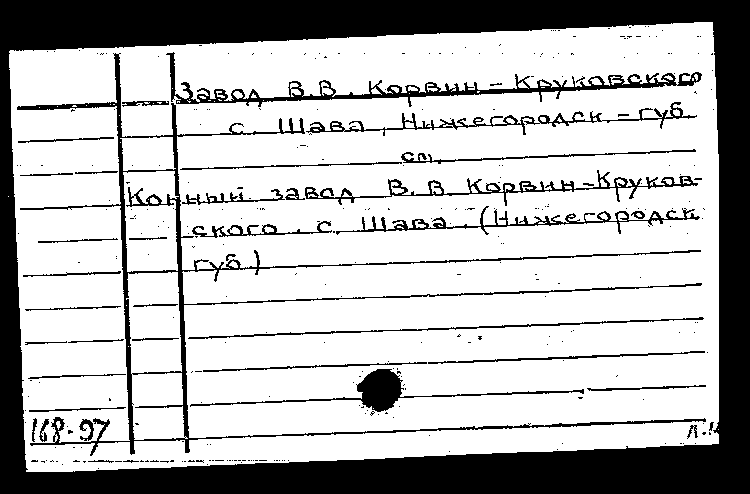 Завод В.В. Корвин-Круковского
с. Шава, Нижегородск.-губ.
см.
Конный завод В.В. Корвин-Круков-
ского. с. Шава. (Нижегородск
губ.)
168-97